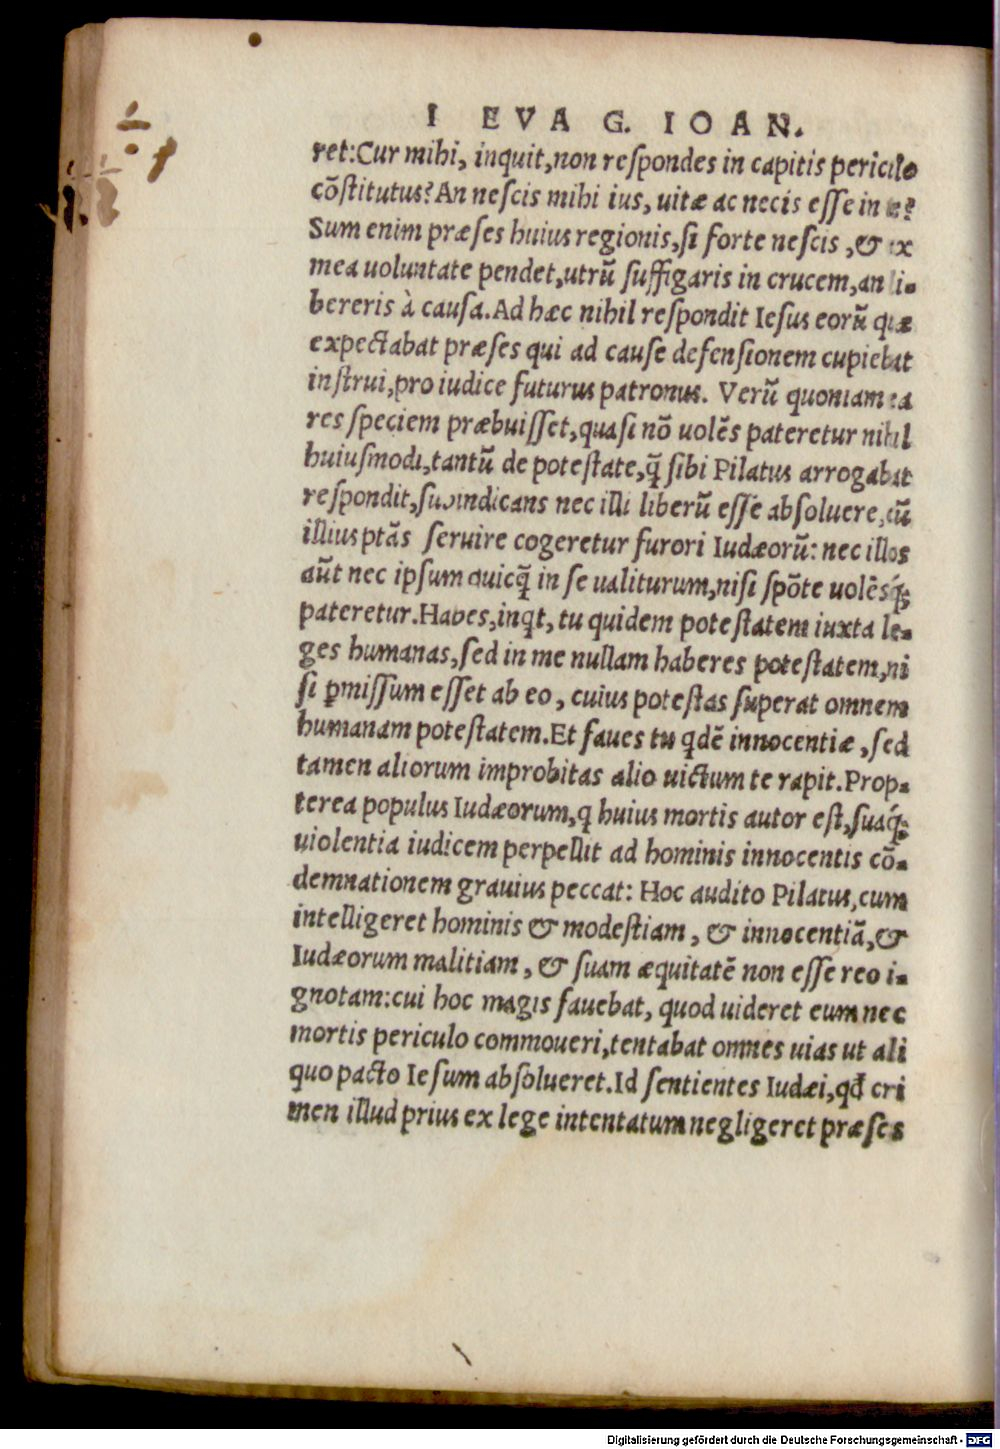 I EVAG. IOAN.
ret: Cur mihi, inquit, non reſpondes in capitis periculo
cōſtitutus? An neſcis mihi ius, uitæ ac necis eſſe in te?
Sum enim præſes huius regionis, ſi forte neſcis, & ex
mea uoluntate pendet, utrū ſuffigaris in crucem, an li-
bereris à cauſa. Ad hæc nihil reſpondit Ieſus eorū quæ
expectabat præſes qui ad cauſe defenſionem cupiebat
inſtrui, pro iudice futurus patronus. Verū quoniam ea
res ſpeciem præbuiſſet, quaſi nō uolēs pateretur nihil
huiuſmodi, tantū de poteſtate, q̄ ſibi Pilatus arrogabat
reſpondit, ſubindicans nec illi liberū eſſe abſoluere, cū
illius ptās ſeruire cogeretur furori Iudæorū: nec illos
aūt nec ipſum quicq̄ in ſe ualiturum, niſi ſpōte uolēsq́;
pateretur. Habes, inqt, tu quidem poteſtatem iuxta le-
ges humanas, ſed in me nullam haberes poteſtatem, ni
ſi ꝑmiſſum eſſet ab eo, cuius poteſtas ſuperat omnem
humanam poteſtatem. Et faues tu qdē innocentiæ, ſed
tamen aliorum improbitas alio uictum te rapit. Prop-
terea populus Iudæorum, q huius mortis autor eſt, ſuaq́;
uiolentia iudicem perpellit ad hominis innocentis cō-
demnationem grauius peccat: Hoc audito Pilatus, cum
intelligeret hominis & modeſtiam, & innocentiā, &
Iudæorum malitiam, & ſuam æquitatē non eſſe reo i-
gnotam: cui hoc magis fauebat, quod uideret eum nec
mortis periculo commoueri, tentabat omnes uias ut ali
quo pacto Ieſum abſolueret. Id ſentientes Iudæi, qđ cri
men illud prius ex lege intentatum negligeret præſes
Digitalisierung gefördert durch die Deutsche Forschungsgemeinschaft - DFG